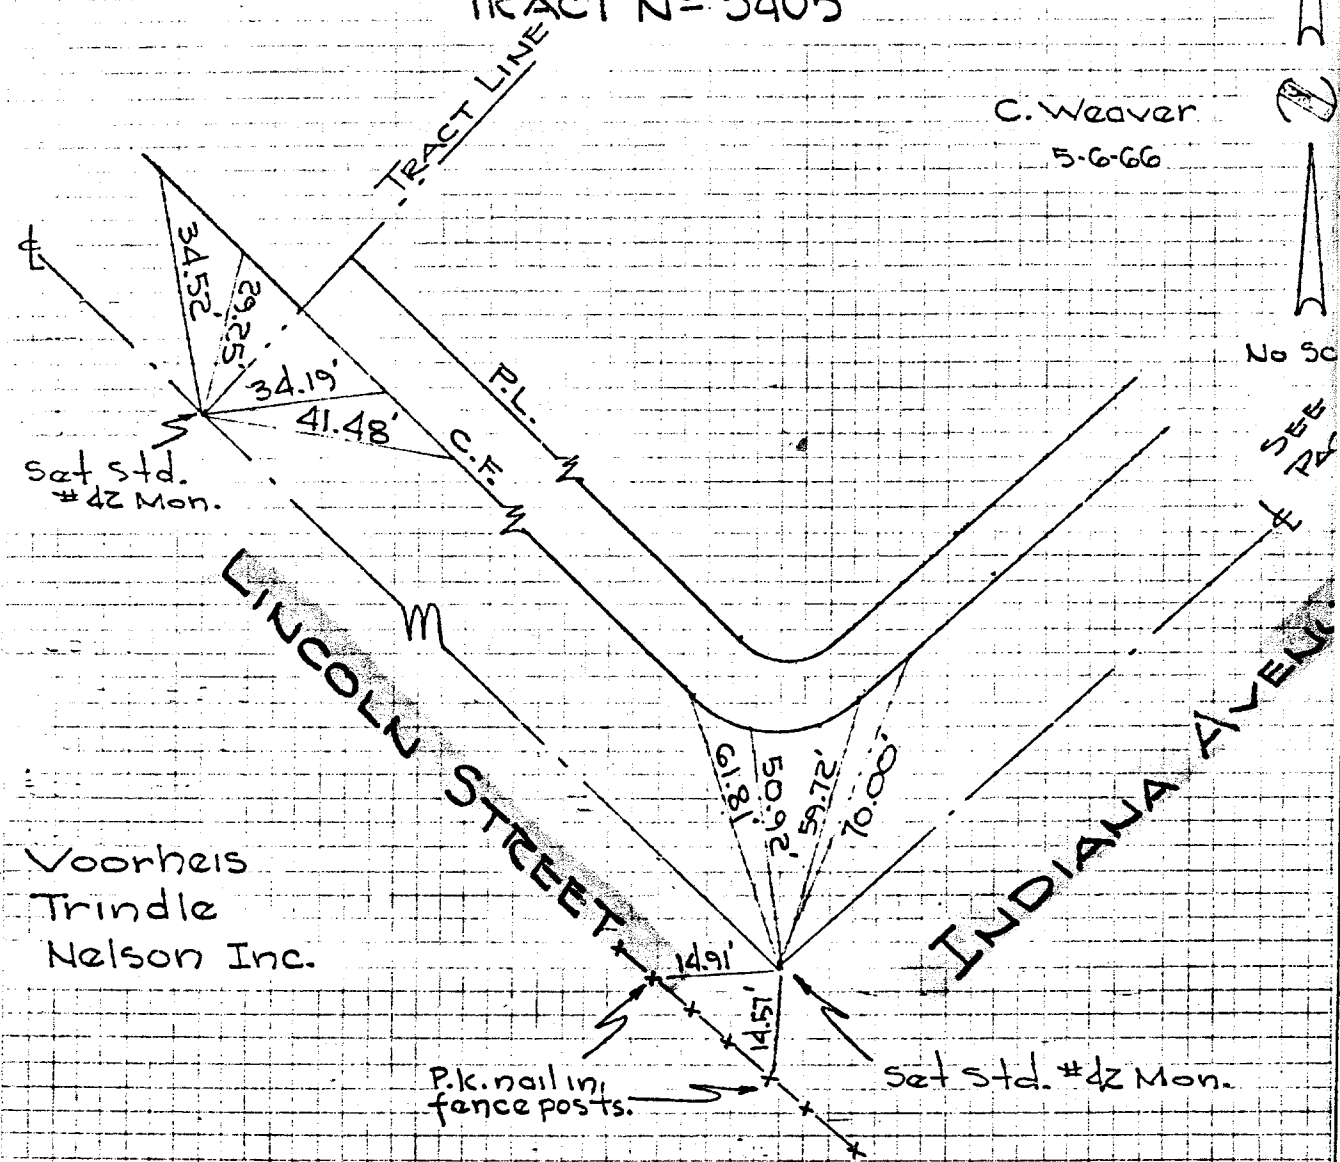 TRACT Nº 3405
TRACT LINE
C. Weaver
5-6-66
℄
34.52'
29.25'
34.19'
41.48'
P.L.
C.F.
No Sc
SEE
Set Std.
#42 Mon.
℄
LINCOLN STREET
INDIANA AVEN.
61.81'
50.92'
59.72'
70.00'
Voorheis
Trindle
Nelson Inc.
14.91'
14.57'
P.K. nail in
fence posts.
Set Std. #42 Mon.